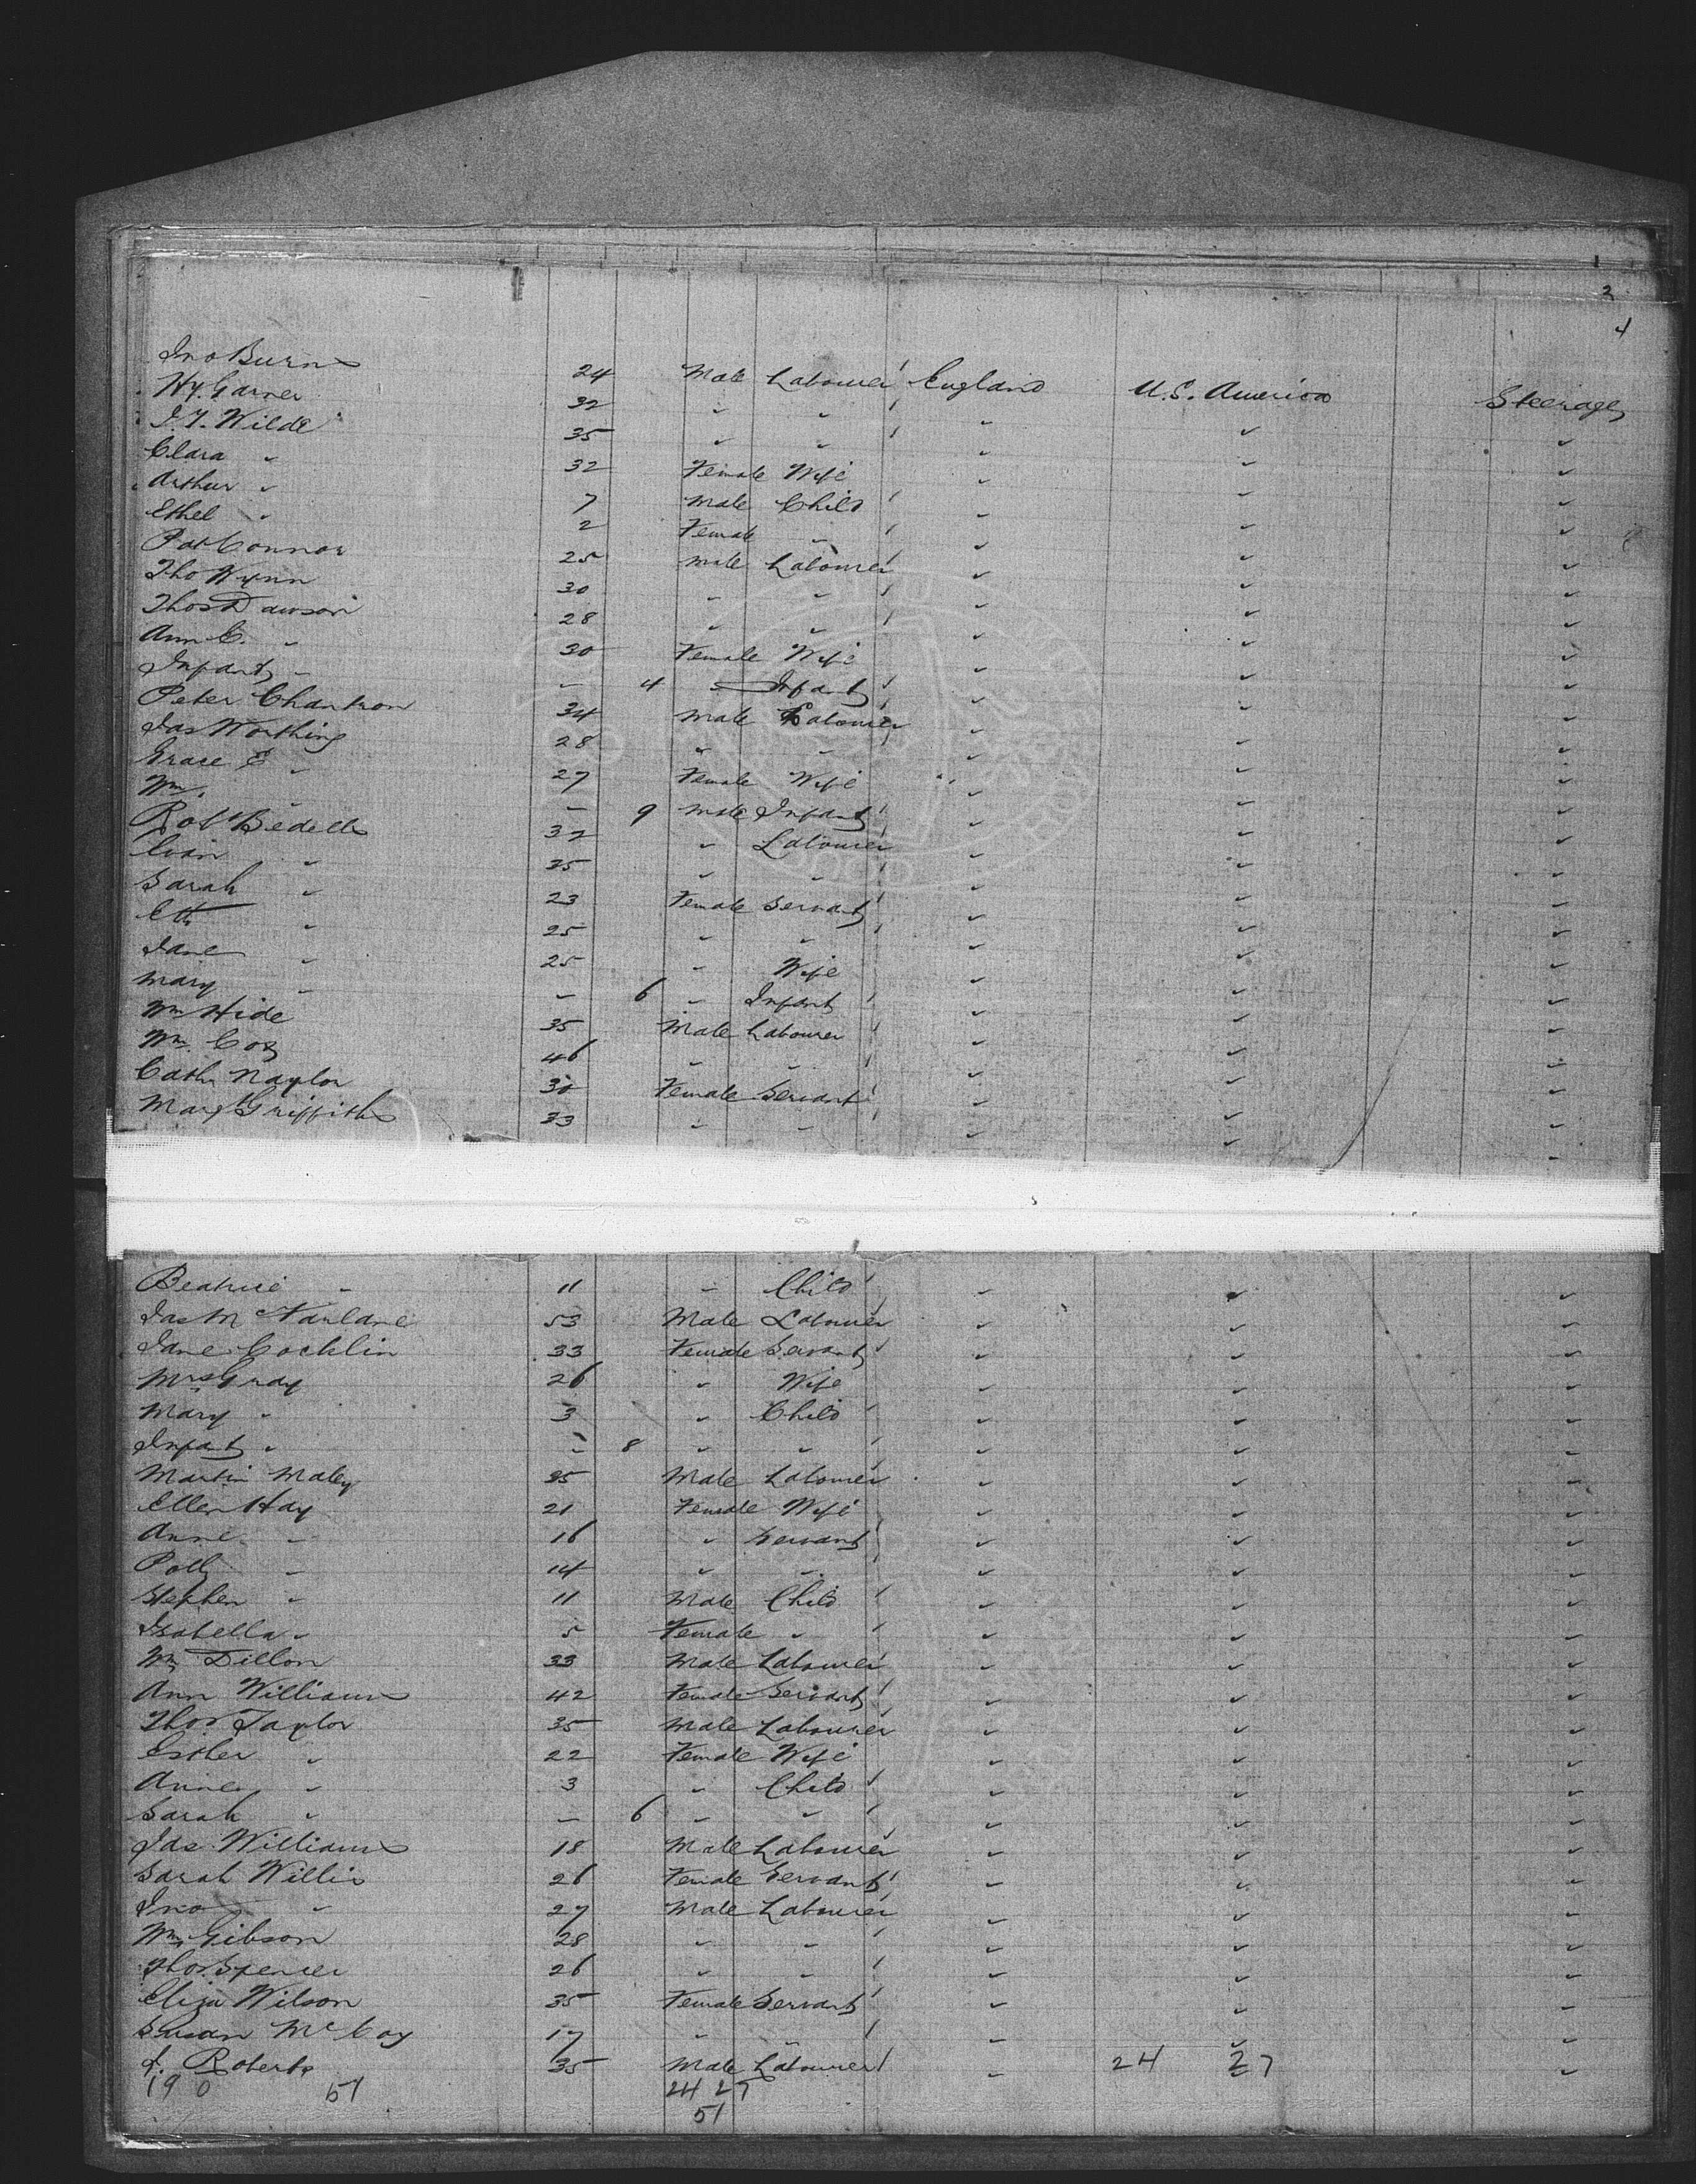 1
2
4
Jno Burns 24 Male Labourer England U.S. America Steerage
Hy. Garner 32 " " " " "
J. T. Wilde 35 " " " " "
Clara " 32 Female Wife " " "
Arthur " 7 Male Child " " "
Ethel " 2 Female " " " "
Pat Connor 25 Male Labourer " " "
Tho Wynn 30 " " " " "
Thos Dawson 28 " " " " "
Ann C. " 30 Female Wife " " "
Infant " - 4 " Infant " " "
Peter Chantron 34 Male Labourer " " "
Jas Worthing 28 " " " " "
Grace E " 27 Female Wife " " "
Wm. " - 9 Male Infant " " "
Robt Bedells 37 " Labourer " " "
Evan " 25 " " " " "
Sarah " 23 Female Servant " " "
Eth " 25 " " " " "
Jane " 25 " Wife " " "
Mary " - 6 " Infant " " "
Wm Hide 35 Male Labourer " " "
Wm. Cox 46 " " " " "
Cath Naylor 30 Female Servant " " "
Margt Griffiths 33 " " " " "
Beatrice " 11 " Child " " "
Jas McFarlane 53 Male Labourer " " "
Jane Cochlin 33 Female Servant " " "
Mrs Gray 26 " Wife " " "
Mary " 3 " Child " " "
Infant " - 8 " " " " "
Martin Maley 25 Male Labourer " " "
Ellen Hay 21 Female Wife " " "
Anne " 16 " Servant " " "
Polly " 14 " " " " "
Stephen " 11 Male Child " " "
Isabella " 5 Female " " " "
Wm Dillon 33 Male Labourer " " "
Ann Williams 42 Female Servant " " "
Thos Taylor 35 Male Labourer " " "
Esther " 22 Female Wife " " "
Anne " 3 " Child " " "
Sarah " - 6 " " " " "
Jas Williams 18 Male Labourer " " "
Sarah Willis 26 Female Servant " " "
Jno " 27 Male Labourer " " "
Wm Gibson 28 " " " " "
Thos Spencer 26 " " " " "
Eliza Wilson 35 Female Servant " " "
Susan McCoy 17 " " " " "
J. Roberts 35 Male Labourer " 24 27 "
19 0 51 24 27
51